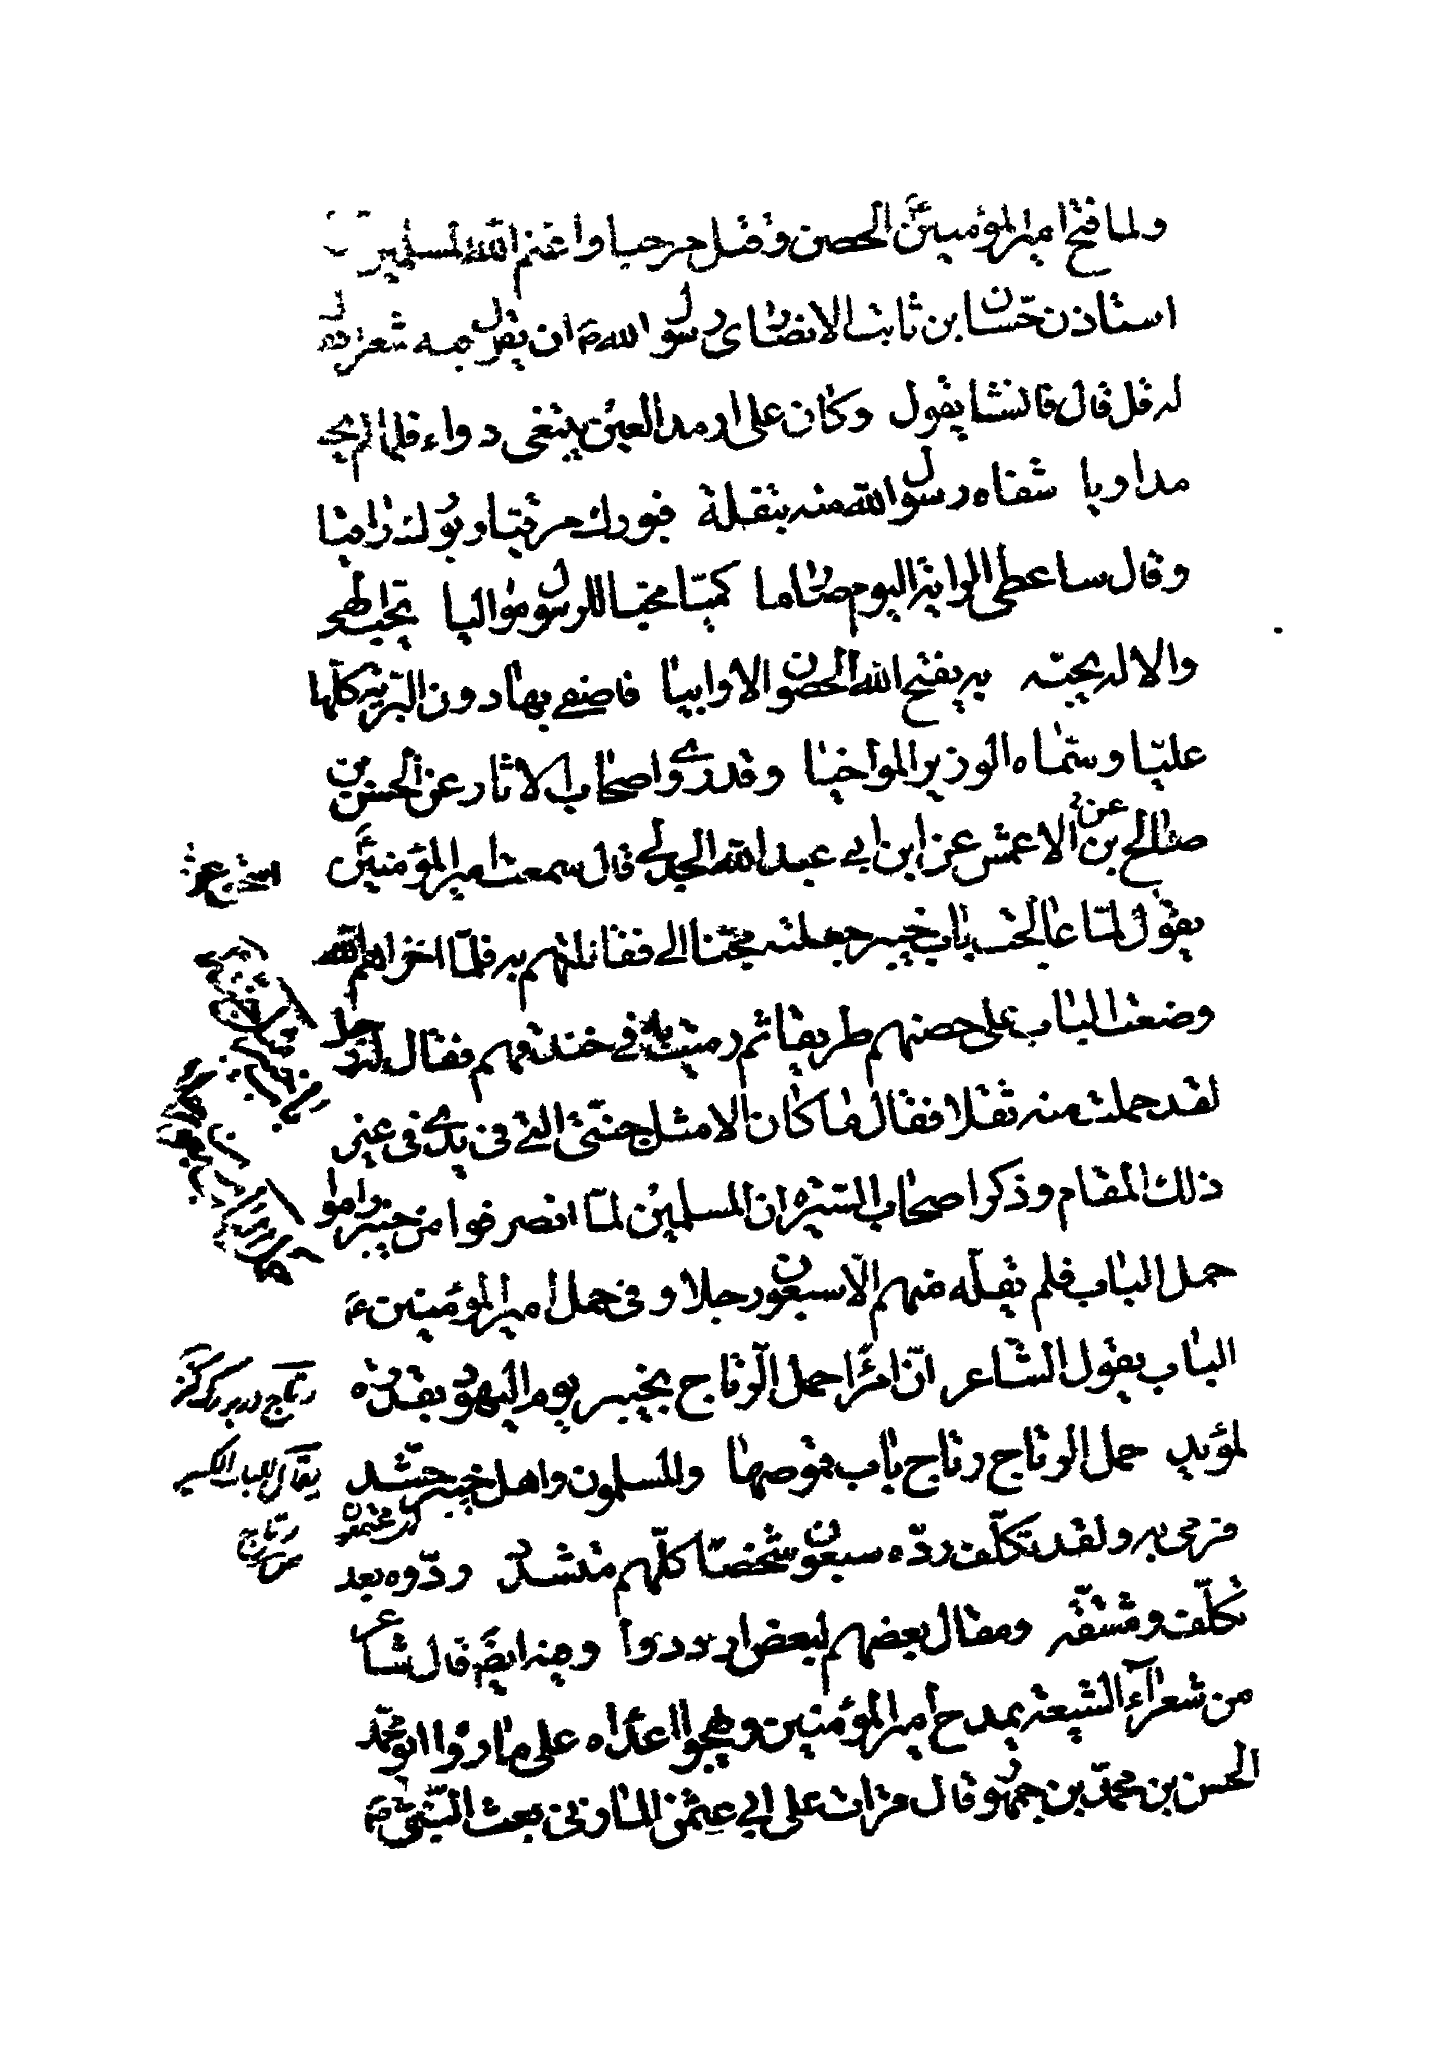 ولما فتح امير المؤمنين الحصن وقتل مرحبا واغنم الله المسلمين
استاذن حسان بن ثابت الانصاری رسول الله ان يقول فيه شعرا
له قل قال فانشا يقول وكان علی ارمد العين يبتغی دواء فلما لم يحس
مداويا شفاه رسول الله منه بتفلة فبورك مرقيا وبورك راقيا
وقال ساعطی الراية اليوم صارما كميا محبا للرسول مواليا يحب الهی
والاله يحبه به يفتح الله الحصون الاوابيا فاصفی بها دون البرية كلها
عليا وسماه الوزير المواخيا وقد روی اصحاب الاثار عن الحسن بن
صالح عن الاعمش عن ابن ابی عبد الله الجدلی قال سمعت امير المؤمنين
يقول لما عالجت باب خيبر جعلته مجنا لی فقاتلتهم به فلما اخزاهم الله
وضعت الباب علی حصنهم طريقا ثم رميت به فی خندقهم فقال له رجل
لقد حملت منه ثقلا فقال ما كان الا مثل جنتی التی فی يدی فی غير
ذلك المقام وذكر اصحاب السيرة ان المسلمين لما انصرفوا من خيبر راموا
حمل الباب فلم يقله منهم الا سبعون رجلا وفی حمل امير المؤمنين ع
الباب يقول الشاعر ان امرءا حمل الرتاج بخيبر يوم اليهود بقدرة
لمؤيد حمل الرتاج رتاج باب قموصها والمسلمون واهل خيبر حشد
فرمی به ولقد تكلف رده سبعون شخصا كلهم متشدد ردوه بعد
تكلف ومشقة ومقال بعضهم لبعض ارددوا وفيه ايضا قال شاعر
من شعراء الشيعة يمدح امير المؤمنين ويهجو اعداه علی ما رواه ابو محمد
الحسن بن محمد بن جمهور قال قرات علی ابی عثمن المازنی بعث النبی
رتاج در بزرك
يقال للباب الكبير
رتاج